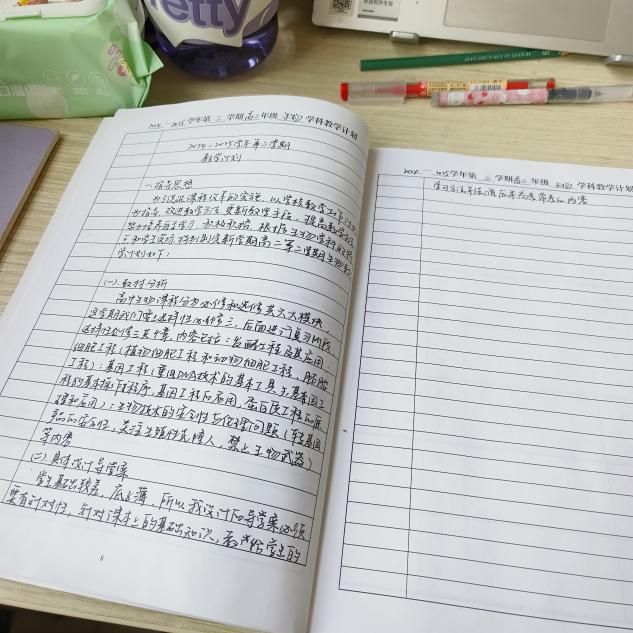 etty
2024 - 2025学年第 二 学期高二年级 生物 学科教学计划
2024-2025学年第二学期
教学计划
一.指导思想
为了促进课程改革的实施,以学校教学工作计划
为指导,改进教学方法,更新教学手段,提高教学
培养自主学习,积极
和学生实际特制定新学期高二第二学期生物
学计划如下:
(一)教材分析
高中生物课程分为必修和选修共六大模块,
这学期我们要上选择性必修三,后面进行复习阶段,
选择性必修三共 章,内容包括:发酵工程及其应用:
细胞工程(植物细胞工程和动物细胞工程,胚胎
工程):基因工程(重组DNA技术的基本工具,基因工
程的基本操作程序,基因工程的应用,蛋白质工程的原
理和应用):生物技术的安全性与伦理问题(转基因
产品的安全性,关注生殖性克隆人,禁止生物武器)
等内容
(二)具体设计导学案
学生基础较差,底子薄,所以我设计的导学案必须
要有针对性,针对课本上的基础知识, 给学生的
8
2024 - 2025学年第 二 学期高二年级 生物 学科教学计划
学习方法